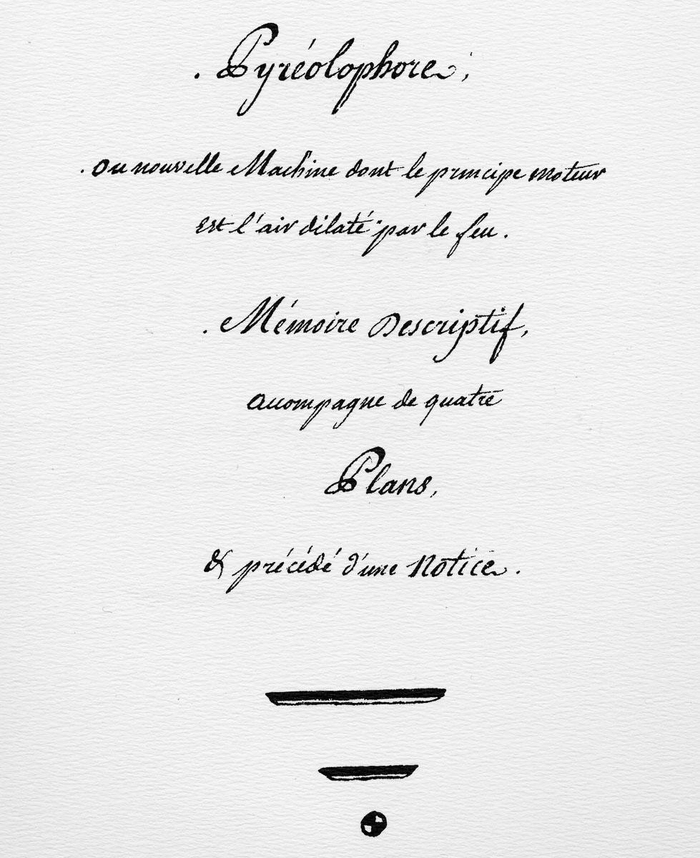 . Pyréolophore,
. Ou nouvelle Machine dont le principe moteur
est l'air dilaté par le feu.
. Mémoire Descriptif,
accompagne de quatre
Plans,
& précédé d'une Notice.